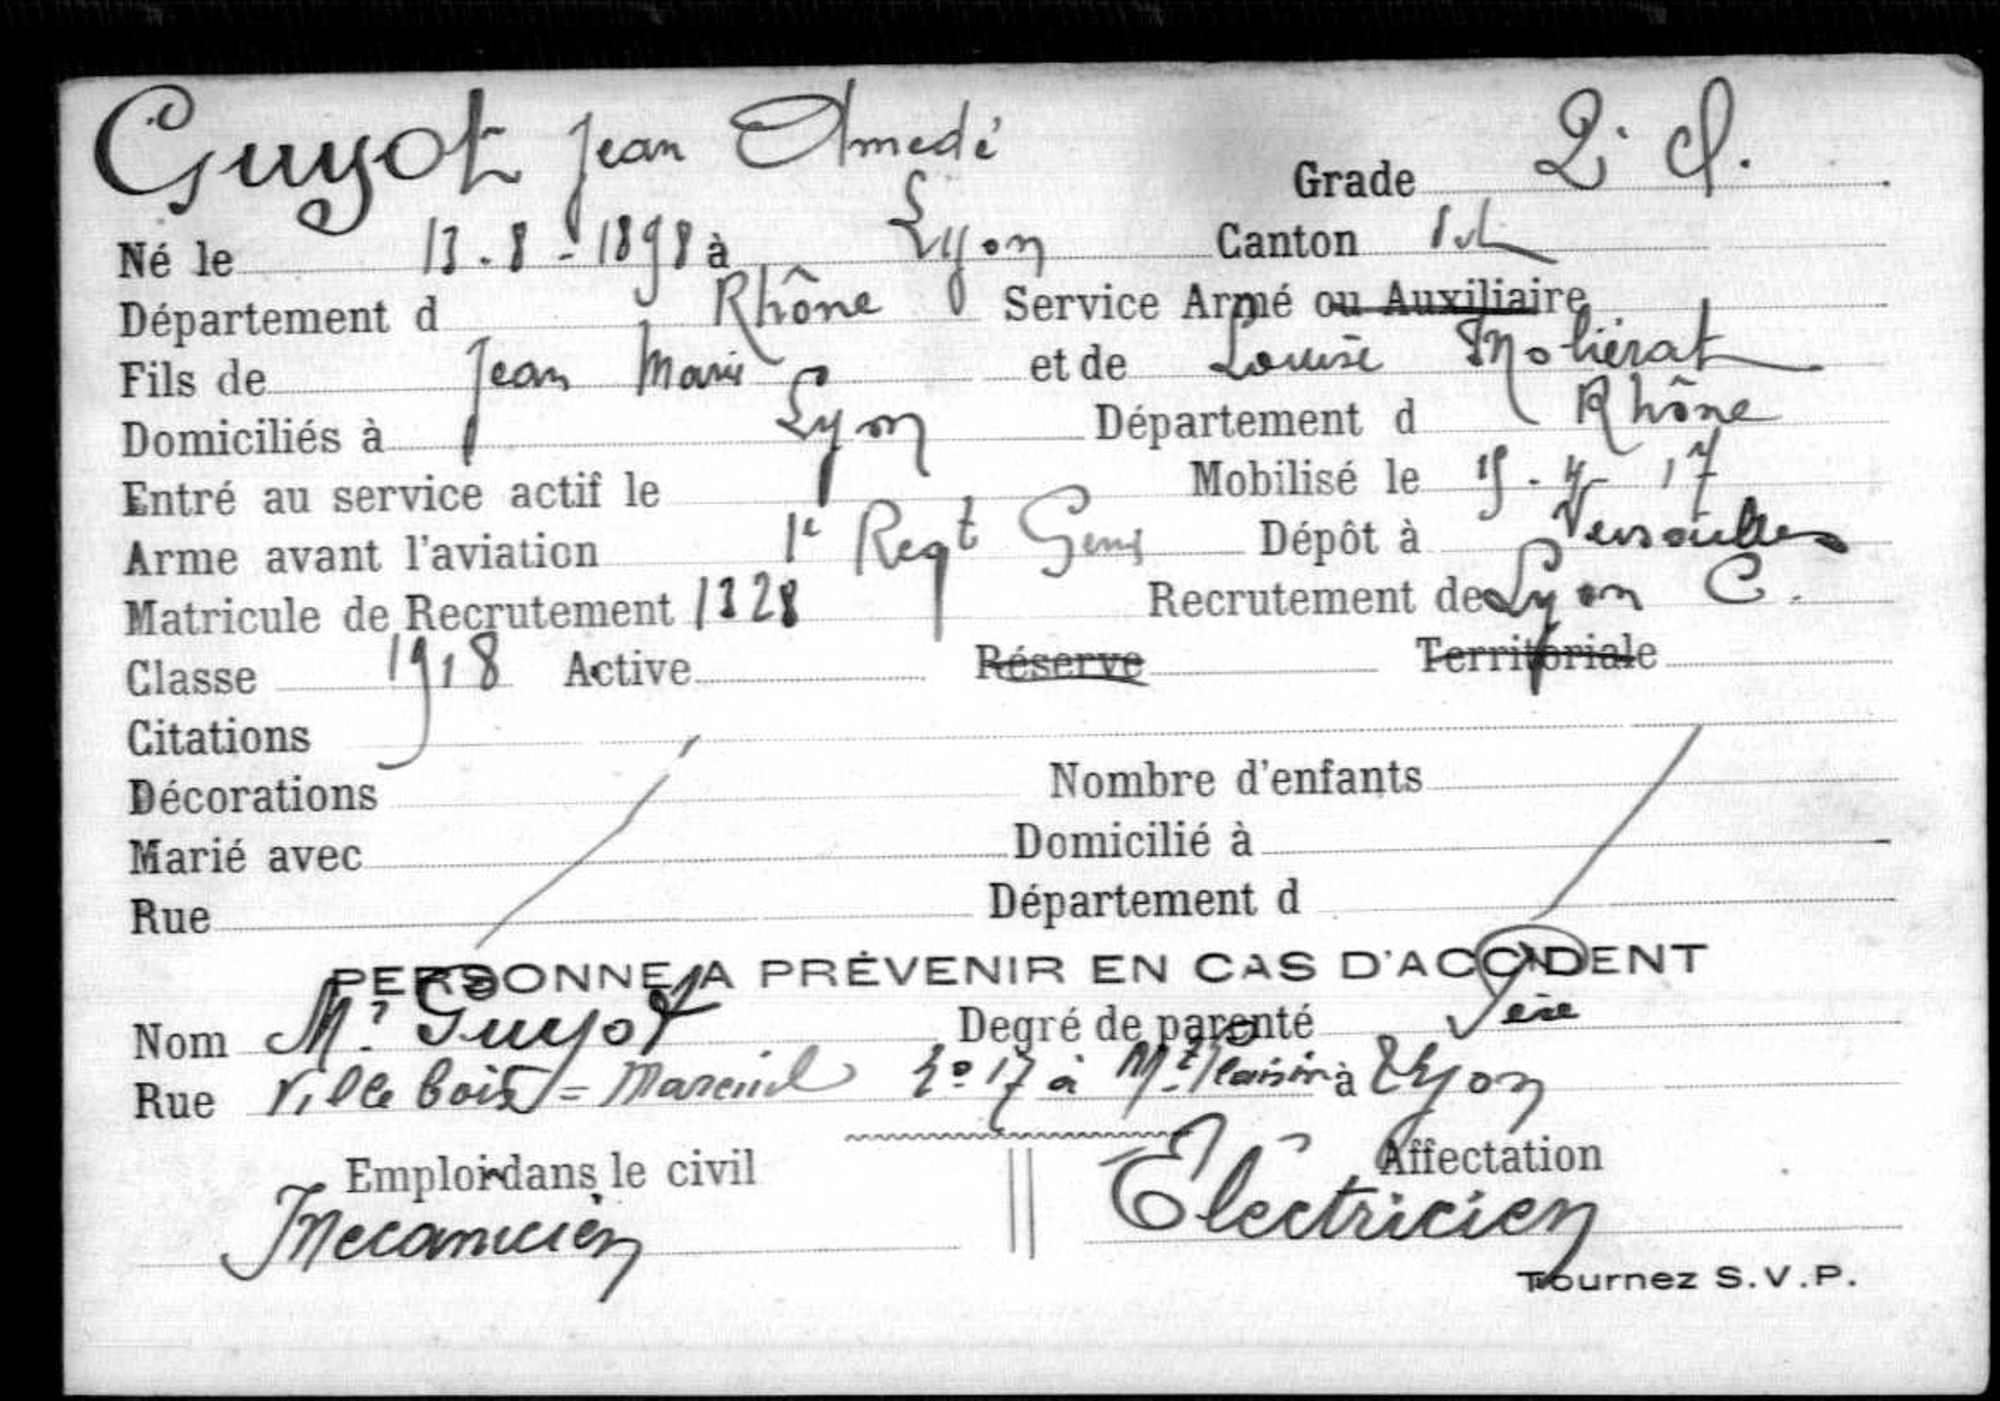 Guyot Jean Amedé Grade 2e cl.
Né le 13.8-1898 à Lyon Canton
Département d Rhône Service Armé ou Auxiliaire
Fils de Jean Marie et de Louise
Domiciliés à Lyon Département d Rhône
Entré au service actif le Mobilisé le 15-4-17
Arme avant l'aviation 1e Regt Genie Dépôt à Versailles
Matricule de Recrutement 1328 Recrutement de Lyon C.
Classe 1918 Active Réserve Territoriale
Citations
Décorations Nombre d'enfants
Marié avec Domicilié à
Rue Département d
PERSONNE A PRÉVENIR EN CAS D'ACCIDENT
Nom Mr Guyot Degré de parenté Père
Rue Ville bois = Mareuil No 17 à Mt Plaisir à Lyon
Emploi dans le civil Affectation
Mecanicien Electricien
Tournez S.V.P.